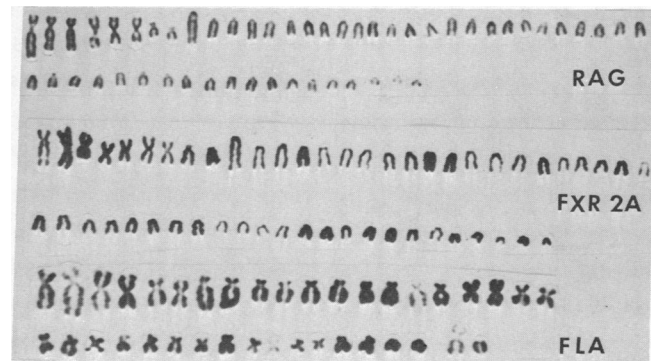 RAG
FXR 2A
FLA